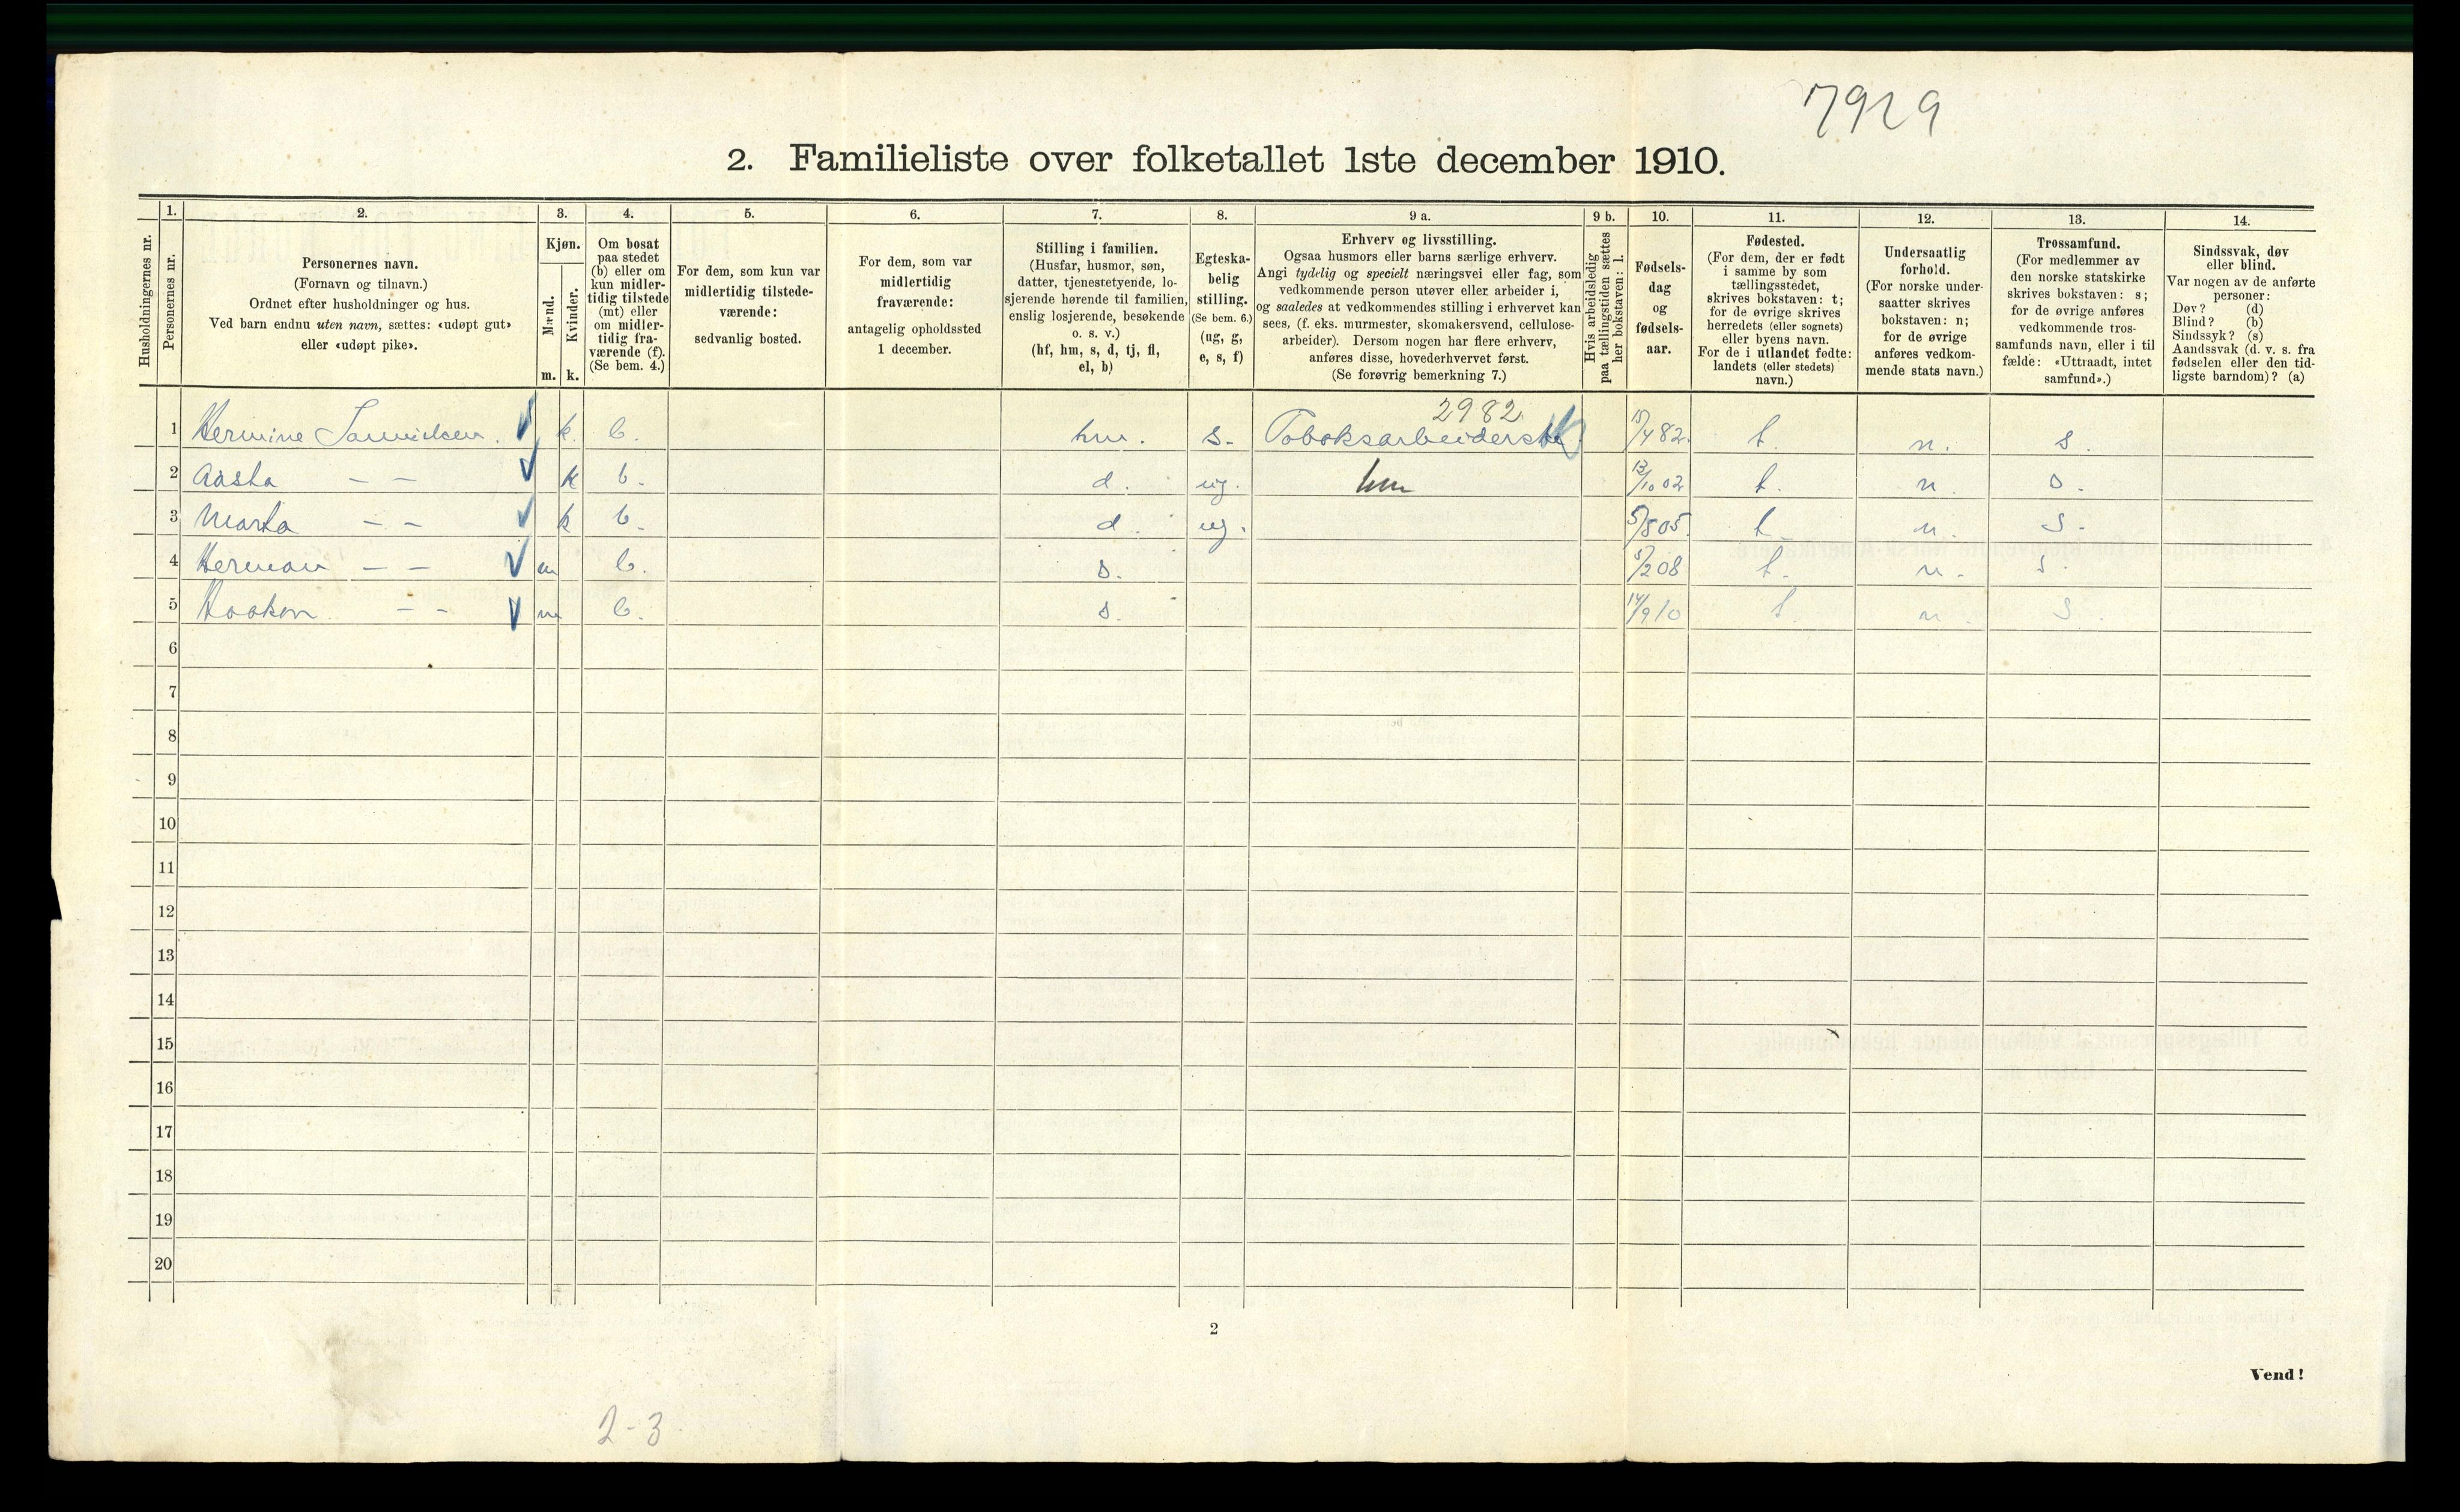 7929
2. Familieliste over folketallet 1ste december 1910.
Husholdningernes nr.
1.
Personernes nr.
2.
Personernes navn.
(Fornavn og tilnavn.)
Ordnet efter husholdninger og hus.
Ved barn endnu uten navn, sættes: «udøpt gut»
eller «udøpt pike».
3.
Kjøn.
Mænd.
Kvinder.
m. k.
4.
Om bosat
paa stedet
(b) eller om
kun midler-
tidig tilstede
(mt) eller
om midler-
tidig fra-
værende (f).
(Se bem. 4.)
5.
For dem, som kun var
midlertidig tilstede-
værende:
sedvanlig bosted.
6.
For dem, som var
midlertidig
fraværende:
antagelig opholdssted
1 december.
7.
Stilling i familien.
(Husfar, husmor, søn,
datter, tjenestetyende, lo-
sjerende hørende til familien,
enslig losjerende, besøkende
o. s. v.)
(hf, hm, s, d, tj, fl,
el, b)
8.
Egteska-
belig
stilling.
(Se bem. 6.)
(ug, g,
e, s, f)
9 a.
Erhverv og livsstilling.
Ogsaa husmors eller barns særlige erhverv.
Angi tydelig og specielt næringsvei eller fag, som
vedkommende person utøver eller arbeider i,
og saaledes at vedkommendes stilling i erhvervet kan
sees, (f. eks. murmester, skomakersvend, cellulose-
arbeider). Dersom nogen har flere erhverv,
anføres disse, hovederhvervet først.
(Se forøvrig bemerkning 7.)
9 b.
Hvis arbeidsledig
paa tællingstiden sættes
her bokstaven: l.
10.
Fødsels-
dag
og
fødsels-
aar.
11.
Fødested.
(For dem, der er født
i samme by som
tællingsstedet,
skrives bokstaven: t;
for de øvrige skrives
herredets (eller sognets)
eller byens navn.
For de i utlandet fødte:
landets (eller stedets)
navn.)
12.
Undersaatlig
forhold.
(For norske under-
saatter skrives
bokstaven: n;
for de øvrige
anføres vedkom-
mende stats navn.)
13.
Trossamfund.
(For medlemmer av
den norske statskirke
skrives bokstaven: s;
for de øvrige anføres
vedkommende tros-
samfunds navn, eller i til
fælde: «Uttraadt, intet
samfund».)
14.
Sindssvak, døv
eller blind.
Var nogen av de anførte
personer:
Døv? (d)
Blind? (b)
Sindssyk? (s)
Aandssvak (d. v. s. fra
fødselen eller den tid-
ligste barndom)? (a)
2982
1 Hermine k. b. hm. s. Toboksarbeiderske 15/4 82. t. n. s.
2 Aasta — — k b. d. ug. hm 13/10 02 t. n. s.
3 Marta — — k b. d. ug. 5/8 05. t. n. s.
4 Herman — — m b. s. 5/2 08 t. n. s.
5 Haakon — — m b. s. 14/9 10 t. n. s.
6
7
8
9
10
11
12
13
14
15
16
17
18
19
20
2
Vend!
2-3